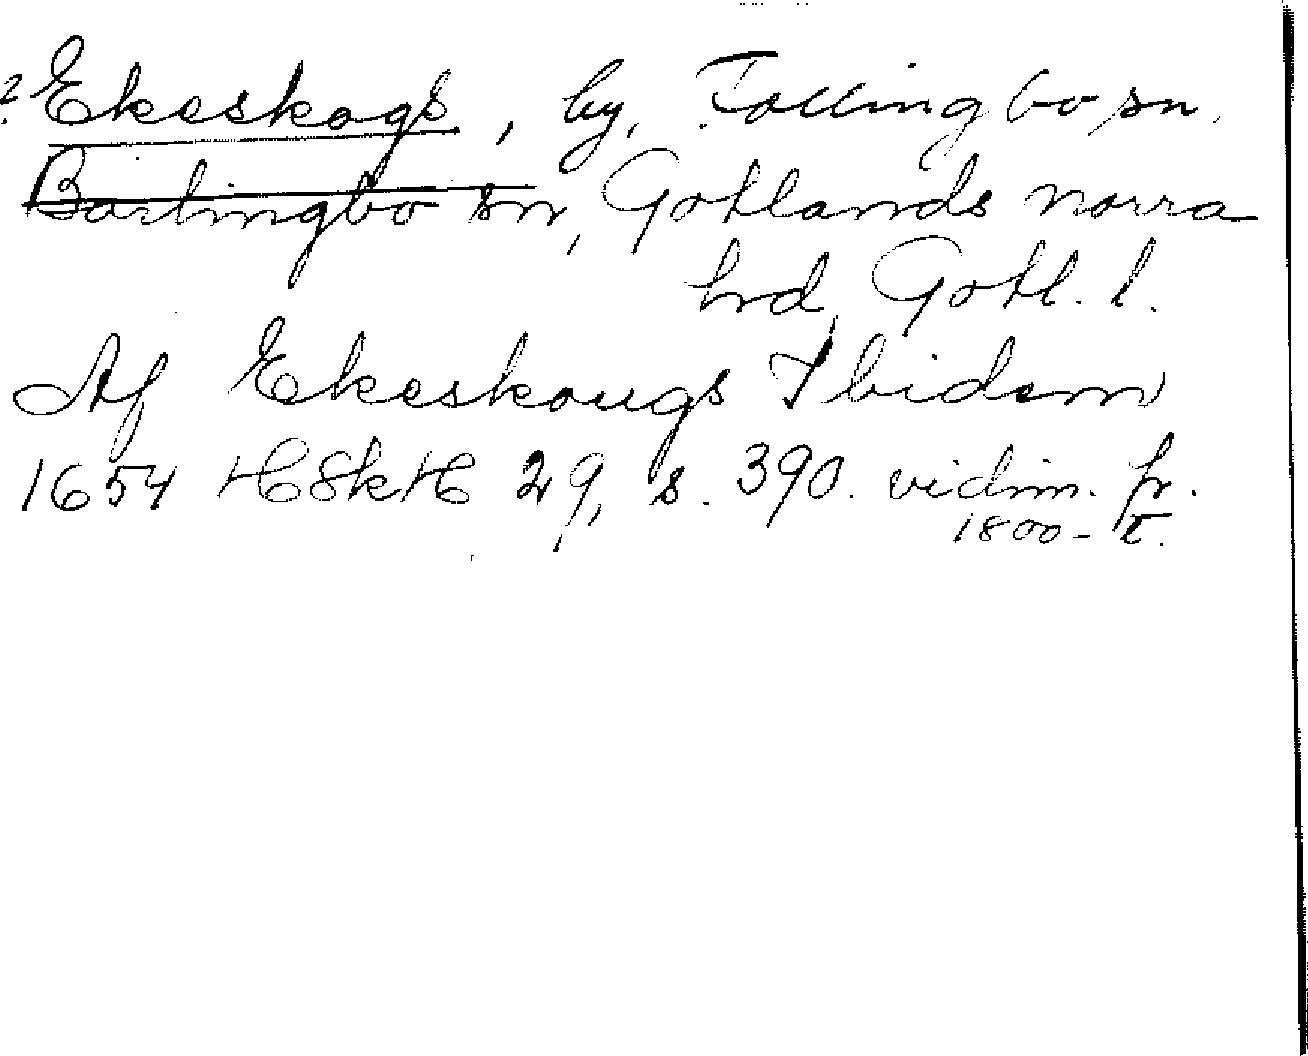 ? Ekeskogs, by, Follingbo sn,
Barlingbo sn, Gotlands norra
hrd, Gotl. l.
Af Ekeskougs Ibidem
1654 HSkH 29, s. 390. vidim. fr.
1800-t.